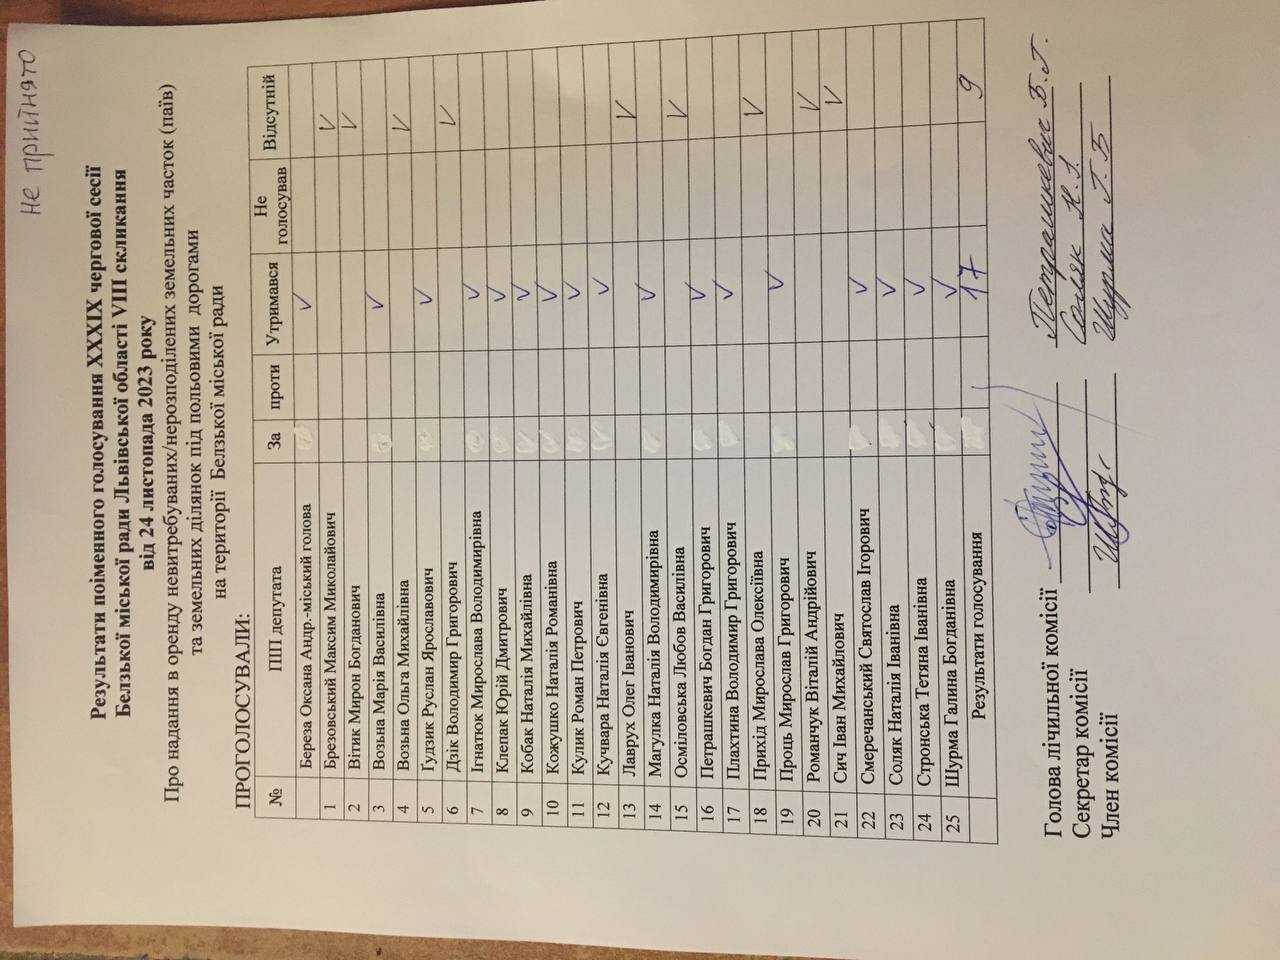 не прийнято
Результати поіменного голосування XXXIX чергової сесії
Белзької міської ради Львівської області VIII скликання
від 24 листопада 2023 року
Про надання в оренду невитребуваних/нерозподілених земельних часток (паїв)
та земельних ділянок під польовими дорогами
на території Белзької міської ради
ПРОГОЛОСУВАЛИ:
№ ПІП депутата За проти Утримався Не голосував Відсутній
Береза Оксана Андр.-міський голова V
1 Брезовський Максим Миколайович V
2 Вітик Мирон Богданович V
3 Возьна Марія Василівна V
4 Возьна Ольга Михайлівна V
5 Гудзик Руслан Ярославович V
6 Дзік Володимир Григорович V
7 Ігнатюк Мирослава Володимирівна V
8 Клепак Юрій Дмитрович V
9 Кобак Наталія Михайлівна V
10 Кожушко Наталія Романівна V
11 Кулик Роман Петрович V
12 Кучвара Наталія Євгенівна V
13 Лаврух Олег Іванович V
14 Магулка Наталія Володимирівна V
15 Осміловська Любов Василівна V
16 Петрашкевич Богдан Григорович V
17 Плахтина Володимир Григорович V
18 Прихід Мирослава Олексіївна V
19 Проць Мирослав Григорович V
20 Романчук Віталій Андрійович V
21 Сич Іван Михайлович V
22 Смеречанський Святослав Ігорович V
23 Соляк Наталія Іванівна V
24 Стронська Тетяна Іванівна V
25 Щурма Галина Богданівна V
Результати голосування 17 9
Голова лічильної комісії Петрашкевич Б.Г.
Секретар комісії Соляк Н.І.
Член комісії Щурма Г.Б